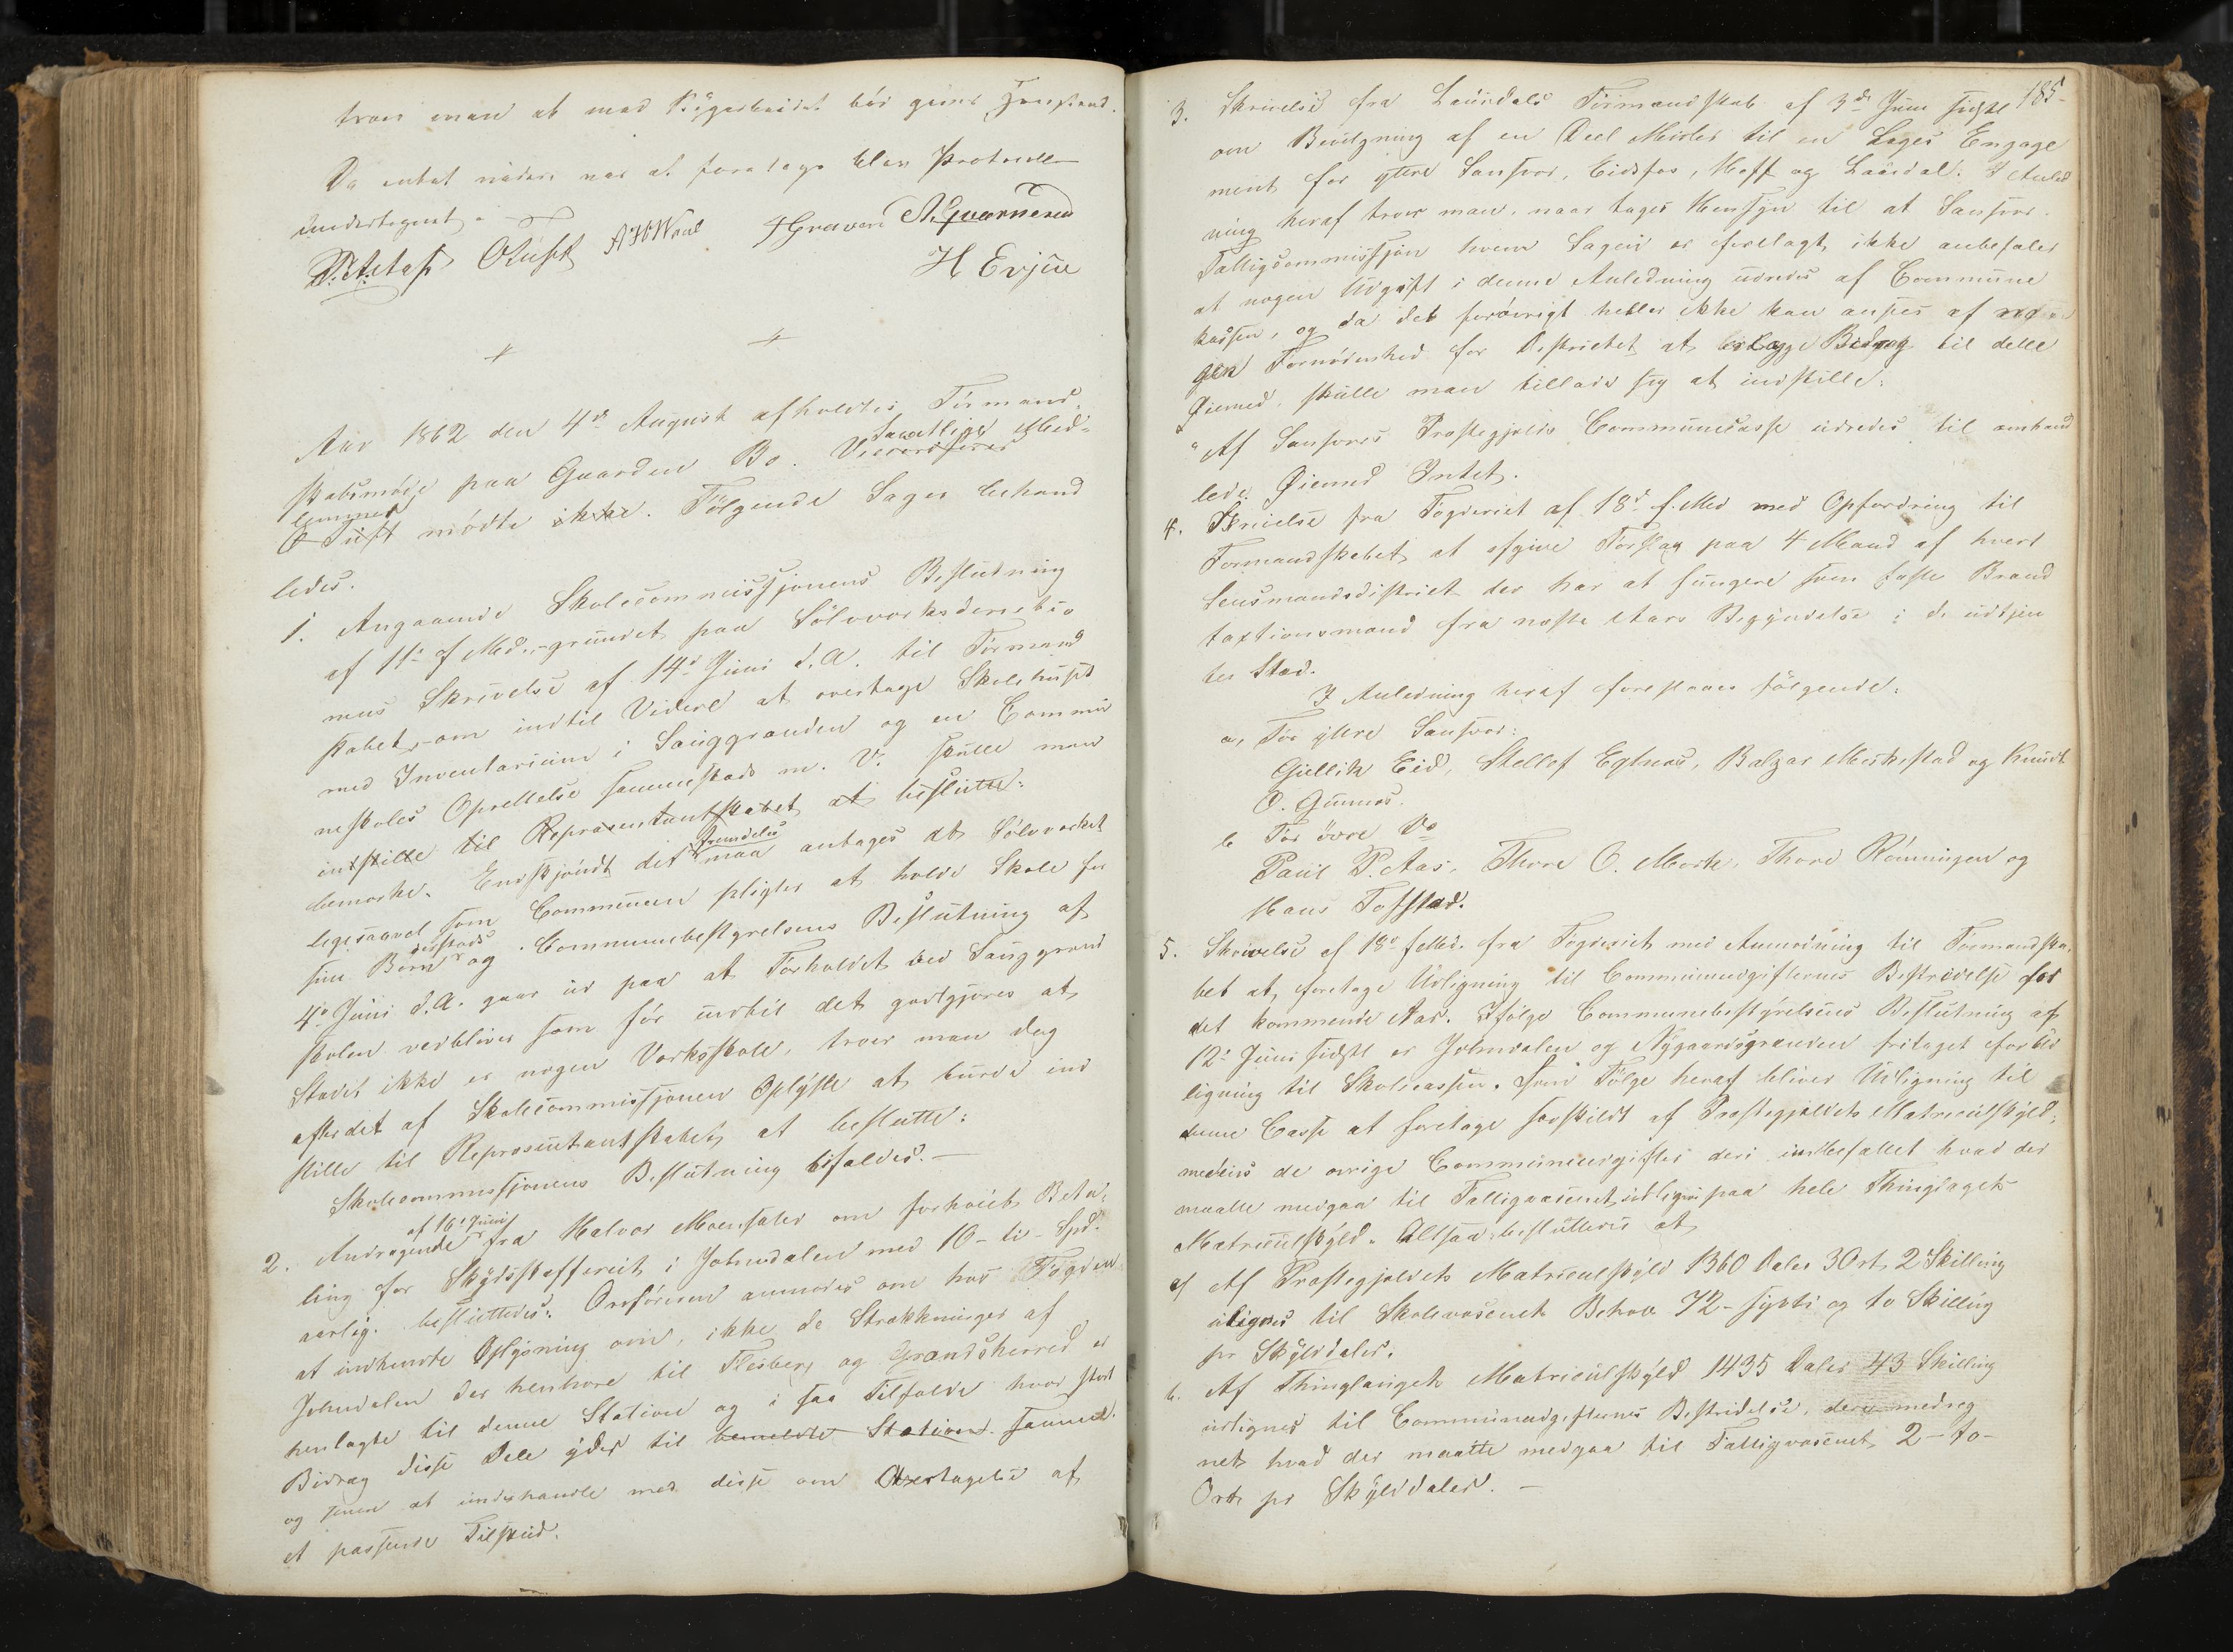 troer man at med Vejarbeidet bör gives Henstand.
Da intet videre var at foretage blev Protocollen
undertegnet.
P. Aas OTuft AHWaal HGraver A.Gvarnæs
H Evjue
Aar 1862 den 4de August afholdtes Formand-
skabsmöde paa Gaarden Bo. Viceordförer Samtlige Med-
lemmer
O Tuft mödte ikke. Fölgende Sager behand
ledes.
1. Angaaende Skolecommissjonens Beslutning
af 11te f Md. grundet paa Sölvværksdirectio
nens Skrivelse af 14d Juni d.A. til Formand
skabet, om indtil Videre at overtage Skolehuset
med Inventarium i Sauggranden og en Commu
neskoles Oprettelse sammesteds m. V. skulle man
indstille til Repræsentantskabet at beslutte:
bemærke. Endskjöndt det fremdeles maa antages at Sölvværket
ligesaavel som Communen pligter at holde Skole for
sine Börn dersteds og Communebestyrelsens Beslutning af
4d Juni d.A. gaar ud paa at Forholdet ved Sauggrand
skolen vedbliver som för indtil det godtgjöres at
Stedet ikke er nogen Værksskole, troer man dog
efter det af Skolecommissjonen Oplyste at burde ind
stille til Repræsentantskabet at beslutte:
Skolecommissjonens Beslutning bifaldes. —
2. Andragende af 16d Juni fra Halvor Moensæter om forhöiet Beta-
ling for Skydsskafferiet i Johnsdalen med 10 - ti - Spd.
aarlig. besluttedes: Ordföreren anmodes om hos Fogden
at indhente Oplysning om, ikke de Strækninger af
Johnsdalen der henhöre til Flesberg og Grandsherred er
henlagte til denne Station og i saa Tilfælde hvor stort
Bidrag disse Dele yder til bemeldte Station samme.
og senere at underhandle med disse om Overtagelse af
et passende Tilskud.
185.
3. Skrivelse fra Laurdals Formandskab af 3de Juni sidstl
om Bevilgning af en Deel Midler til en Læges Engage
ment for ytre Sandsvær, Eidsfos, Hoff og Laurdal. I Anled
ning heraf troer man, naar tages Hensyn til at Sandsvær
Fattigcommissjon hvem Sagen er forelagt, ikke anbefaler
at nogen Udgift i denne Anledning udredes af Commune
kassen, og da det forövrigt heller ikke kan ansees af no
gen Fornödenhed for Districtet at bilægge Bidrag til dette
Öiemed, skulle man tillade sig at indstille:
"Af Sandsværs Præstegjelds Communecasse udredes til omhand
lede Öiemed Intet.
4. Skrivelse fra Fogderiet af 18d f. Md med Opfordring til
Formandskabet at afgive Forslag paa 4 Mænd af hvert
Lensmandsdistrict der har at fungere som faste Brand
taxtionsmænd fra næste Aars Begyndelse i de udtjen
tes Sted.
I Anledning heraf foreslaaes fölgende:
a, For ytre Sandsvær:
Gullik Eid, Stellef Egtnes, Balzar Meskestad og Knudt
O. Gunnæs.
b For övre Do
Paul P. Aas, Thore O. Mörk, Thore Rönningen og
Hans Tofstad.
5. Skrivelse af 18d f Md. fra Fogderiet med Anmodning til Formandska-
bet at foretage Udligning til Communeudgifternes Bestridelse for
det kommende Aar. Ifölge Communebestyrelsens Beslutning af
12te Juni sidstl er Johnsdalen og Nygaardsgranden fritaget for Ud
ligning til Skolecassen. Som Fölge heraf bliver Udligning til
denne Casse at foretage særskildt af Præstegjeldets Matriculskyld;
medens de övrige Communeudgifter deri indbefattet hvad der
maatte medgaa til Fattigvæsenet udlignes paa hele Thinglagets
Matriculskyld. Altsaa besluttedes at
a, Af Præstegjeldets Matriculskyld 1360 Daler 3 Ort 2 Skilling
udlignes til Skolevæsenets Behov 72 - sytti og to Skilling
pr Skylddaler.
b. Af Thinglagets Matriculskyld 1435 Daler 43 Skilling
udlignes til Communeudgifternes Bestridelse, deri medreg
net hvad der maatte medgaa til Fattigvæsenet 2 - to -
Ort pr Skylddaler. —